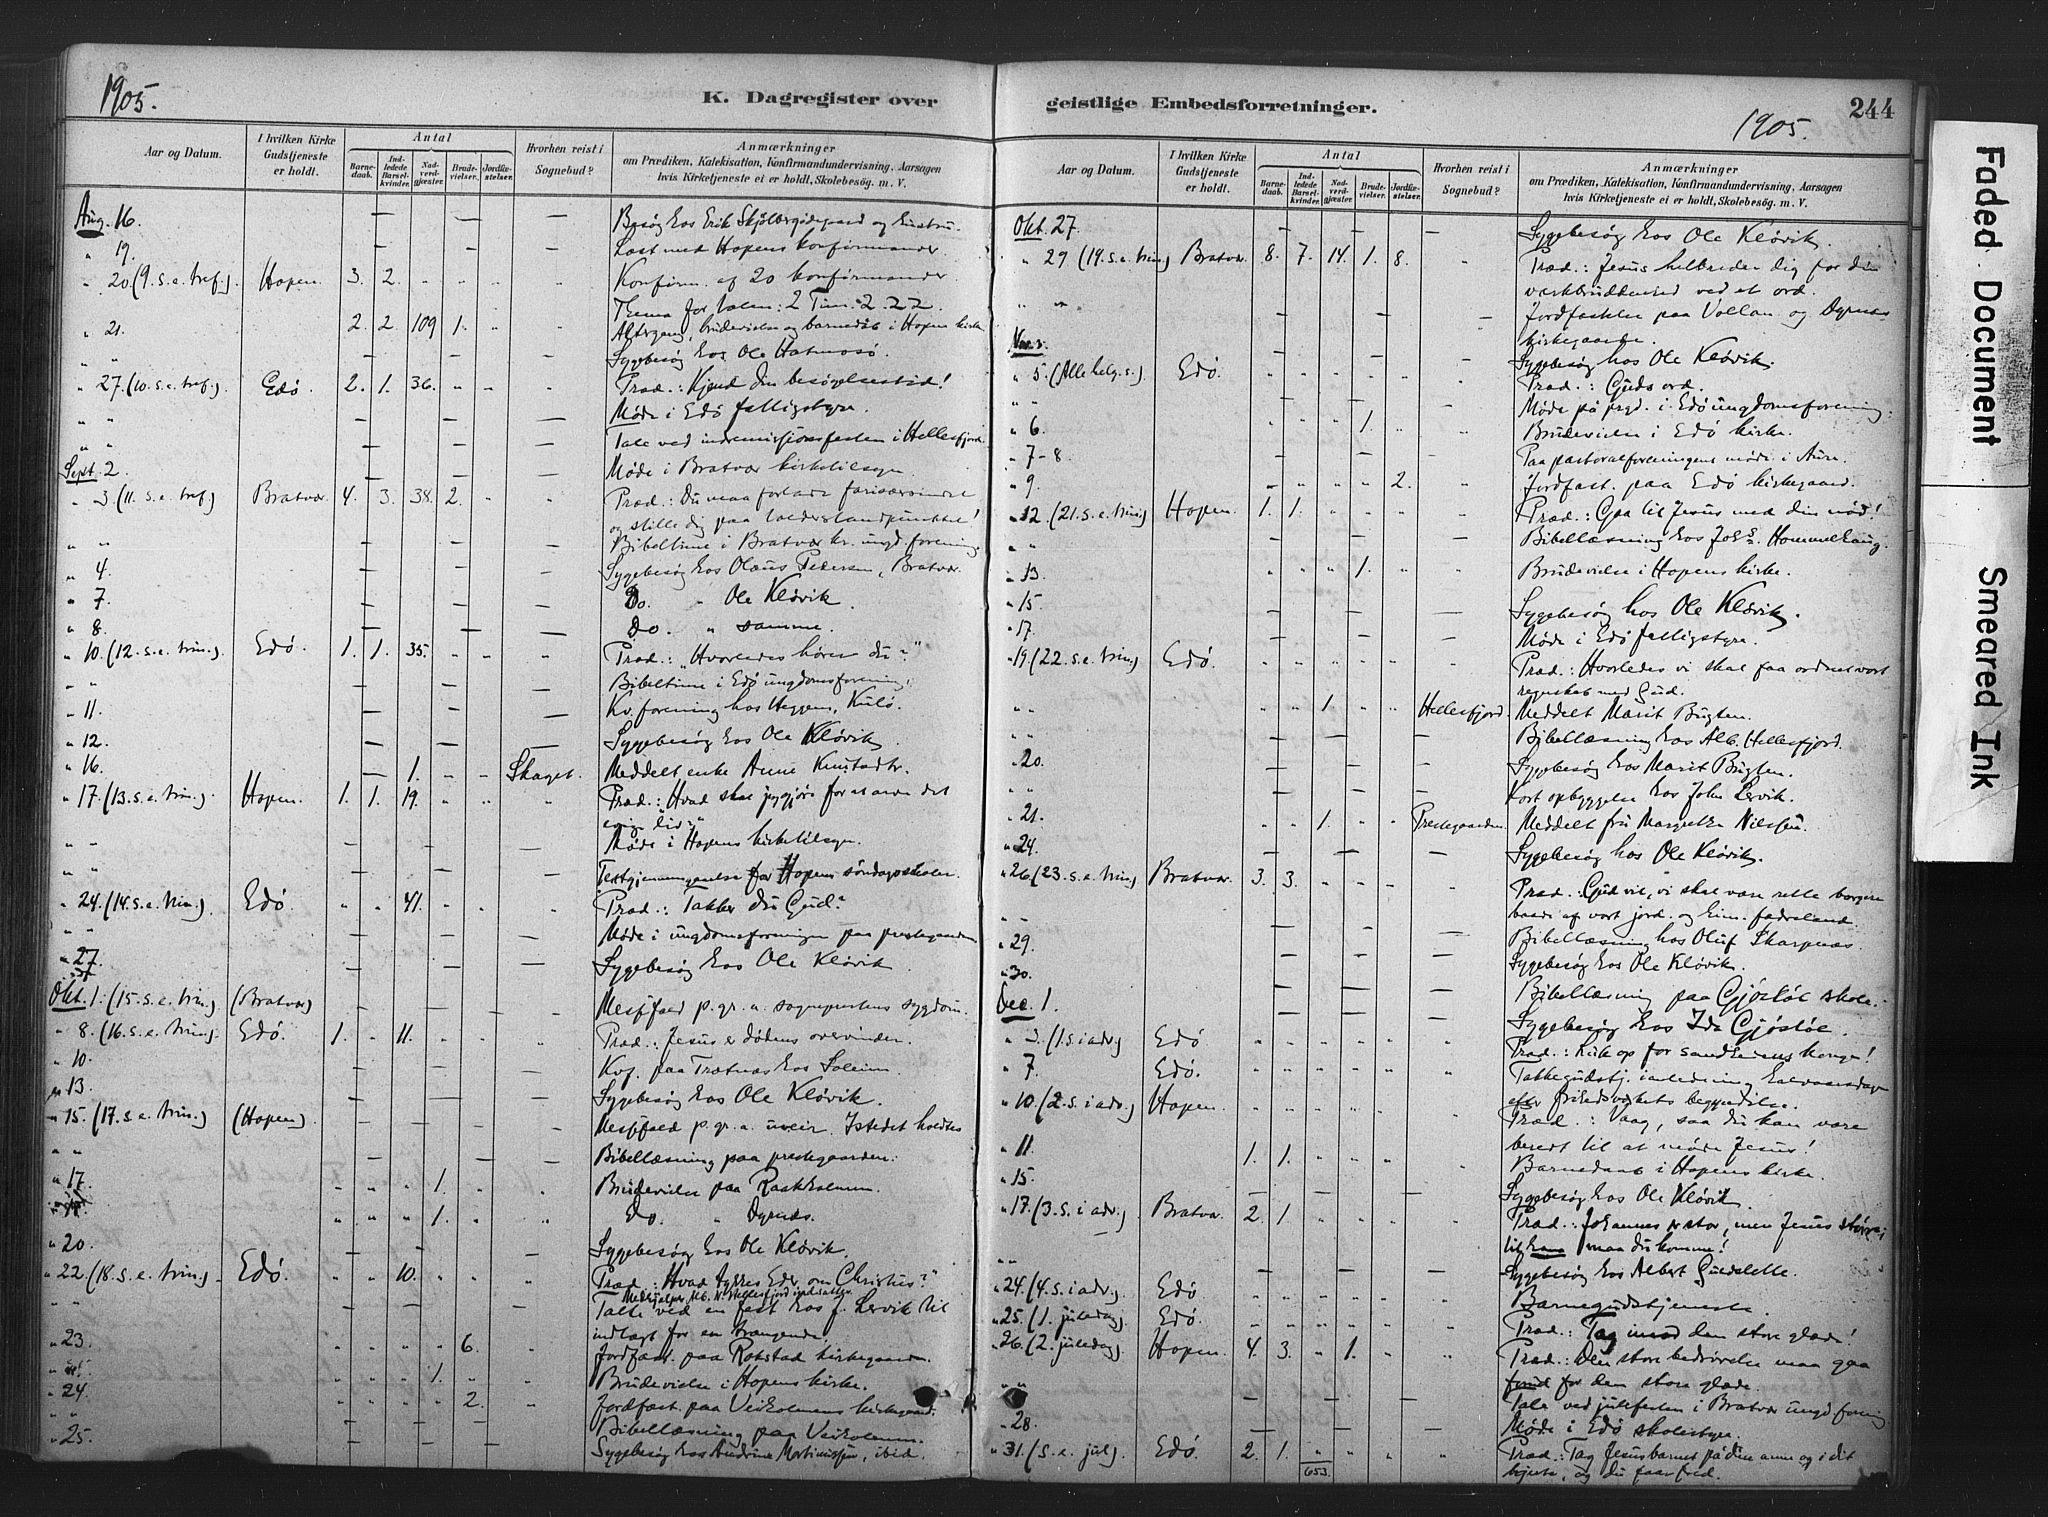 1905.
K. Dagregister over
Aar og Datum.
I hvilken Kirke Gudstjeneste er holdt.
Antal
Barnedaab.
Indledede Barselkvinder.
Nadverdgjæster.
Brudevielser.
Jordfæstelser.
Hvorhen reist i Sognebud?
Anmærkninger
om Prædiken, Katekisation, Konfirmandundervisning, Aarsagen
hvis Kirketjeneste ei er holdt, Skolebesøg. m. V.
Aug. 16. — — — Besøg hos Erik
" 19. — — — Læst med Hopens konfirmander
" 20. (9. s. e. tref.) Hopen. 3. 2. " " " " Konfirm. af 20 konfirmander
Thema for talen: 2 Tim. 2. 22.
" 21. 2. 2. 109 1. " " Altergang, brudevielse og barnedåb i Hopens kirke
" — — — Sygebesøg hos Ole
" 27. (10. s. e. tref.) Edø. 2. 1. 36. " " " Præd.: Kjend din besøgelsestid!
" " — — — Møde i Edø fattigstyre.
" " — — — Tale ved indremissionsfesten i Hellesfjord.
Sept. 2 — — — Møde i Bratvær kirketilsyn
" 3 (11. s. e. tref) Bratvær 4. 3. 38. 2. " " Præd.: Du maa forlade farisæersindet
og stille dig paa tolderstandpunktet!
" " — — — Bibeltime i Bratvær kr. ungd. forening.
" 4. — — — Sygebesøg hos Olaus Pedersen, Bratvær
" 7. — — — Do. " Ole Kløvik.
" 8. — — — Do. " samme.
" 10. (12. s. e. trin.) Edø. 1. 1. 35. " " " Præd.: "Hvorledes hører du?"
" — — — Bibeltime i Edø ungdomsforening.
" 11. — — — Kv. forening hos Heggem, Kulø.
" 12. — — — Sygebesøg hos Ole Kløvik.
" 16. — 1. " " Skaget. Meddelt enke Anne
" 17. (13. s. e. trin.) Hopen. 1. 1. 19. " " " Præd.: Hvad skal jeg gjøre for at arve det
evige liv?
" " — — — Møde i Hopens kirketilsyn.
" " — — — Textgjennemgaaelse for Hopens søndagsskoler.
" 24. (14. s. e. trin.) Edø. " " 41. " " " Præd.: Takker du Gud?
" " — — — Møde i ungdomsforeningen paa prestegaarden.
" 27. — — — Sygebesøg hos Ole Kløvik.
Okt. 1. (15. s. e. trin.) (Bratvær) " " " " " " Messfald p. gr. a. sogneprestens sygdom.
" 8. (16. s. e. trin.) Edø. 1. " 11. " " " Præd.: Jesus er dødens overvinder.
" 10. — — — Kvf. paa Trætnæs hos Soleim.
" 13. — — — Sygebesøg hos Ole Kløvik.
" 15. (17. s. e. trin.) (Hopen) " " " " " " Messfald p. gr. a. uveir. Istedet holdtes
" " — — — Bibellæsning paa prestegaarden.
" 17. " " " 1. " " Brudevielse paa
" " " " 1. " " Do. " Dyrnæs.
" 20. — — — Sygebesøg hos Ole Kløvik.
" 22. (18. s. e. trin.) Edø. " " 10. " " " Præd.: "Hvad tykkes Eder om Christus?"
" " — — — Tale ved en fest hos J. Lervik til
indtægt for en trængende.
" 23. " " " " 6. " Jordfæst. paa Rokstad kirkegaarden.
" " " " 1. " " Brudevielse i Hopens kirke.
" 24. " " " " 2. " Jordfæst. paa Veiholmens kirkegaard.
" " — — — Bibellæsning paa Veiholmen.
" 25. — — — Sygebesøg hos Andrine Martinussen, ibid.
geistlige Embedsforretninger.
244
1905.
Aar og Datum.
I hvilken Kirke Gudstjeneste er holdt.
Antal
Barnedaab.
Indledede Barselkvinder.
Nadvergjæster.
Brudevielser.
Jordfæstelser.
Hvorhen reist i Sognebud?
Anmærkninger
om Prædiken, Katekisation, Konfirmandundervisning, Aarsagen
hvis Kirketjeneste ei er holdt, Skolebesøg. m. V.
Okt. 27. — — — Sygebesøg hos Ole Kløvik.
" 29 (19. s. e. trin) Bratvær. 8. 7. 14. 1. 8. " Præd.: Jesus helbreder dig for din
værkbrudenhed ved et ord.
" " — — — Jordfæstelse paa Vollan og Dyrnæs
kirkegaarde.
Nov. 3. — — — Sygebesøg hos Ole Kløvik.
" 5. (Alle helg. s.) Edø. " " " " " " Præd.: Guds ord.
" " — — — Møde på prgd. i Edø ungdomsforening.
" 6. " " " 1. " " Brudevielse i Edø kirke.
" 7–8 — — — Paa pastoralforeningens møde i Aure.
" 9. " " " " 2. " Jordfæst. paa Edø kirkegaard.
" 12. (21. s. e. trin.) Hopen. 1. 1. " " " " Præd.: Gaa til Jesus med din nød!
" " — — — Bibellæsning hos Johs. Hommelhaug.
" 13. " " " 1. " " Brudevielse i Hopens kirke.
" 15. — — — Sygebesøg hos Ole Kløvik.
" 17. — — — Møde i Edø fattigstyre.
" 19. (22. s. e. trin.) Edø. " " " " " " Præd.: Hvorledes vi skal faa ordnet vort
regnskab med Gud.
" " " " 1 " " Hellesfjord. Meddelt Marit Bugten.
" " — — — Bibellæsning hos Alb. Hellesfjord.
" 20. — — — Sygebesøg hos Marit Bugten.
" " — — — Kort opbyggelse hos John Lervik.
" 21. " " 1. " " Prestegaarden. Meddelt fru Margrethe Nilssen.
" 24. — — — Sygebesøg hos Ole Kløvik.
" 26. (23. s. e. trin.) Bratvær. 3. 3. " " " " Præd.: Gud vil, vi skal være rette borgere
baade af vort jord. og him. fædreland.
" " — — — Bibellæsning hos Oluf Skarpnæs.
" 29. — — — Sygebesøg hos Ole Kløvik.
" 30. — — — Bibellæsning paa Gjøsløe skole.
Dec. 1. — — — Sygebesøg hos Ida Gjøsløe.
" 3. (1. s. i adv.) Edø. " " " " " " Præd.: Luk op for sandhedens konge!
" 7. Edø. " " " " " " Takkegudstj. i anledning halvaarsdagen
efter
" 10. (2. s. i adv.) Hopen. " " " " " " Præd.: Vaag, saa du kan være
beredt til at møde Jesus!
" 11. 1. 1. " " " " Barnedaab i Hopens kirke.
" 15. — — — Sygebesøg hos Ole Kløvik.
" 17. (3. s. i adv.) Bratvær. 2. 1. " " " " Præd.: Johannes er stor, men Jesus større;
til ham maa du komme!
" " — — — Sygebesøg hos Albert
" 24. (4. s. i adv.) Edø " " " " " " Barnegudstjeneste.
" 25. (1. juledag) Edø. " " " " " " Præd.: Tag imod den store glæde!
" 26. (2. juledag) Hopen. 4. 3. " 1. " " Præd.: Den store bedrøvelse maa gaa
forud for den store glæde.
" " — — — Tale ved julefesten i Bratvær ungd. forening
" 28. — — — Møde i Edø skolestyre.
" 31. (s. e. jul) Edø. 2. 1. " " " " Præd.: Tag Jesusbarnet på dine arme og i dit
hjerte, og du faar fred.
653.
Faded Document
Smeared Ink